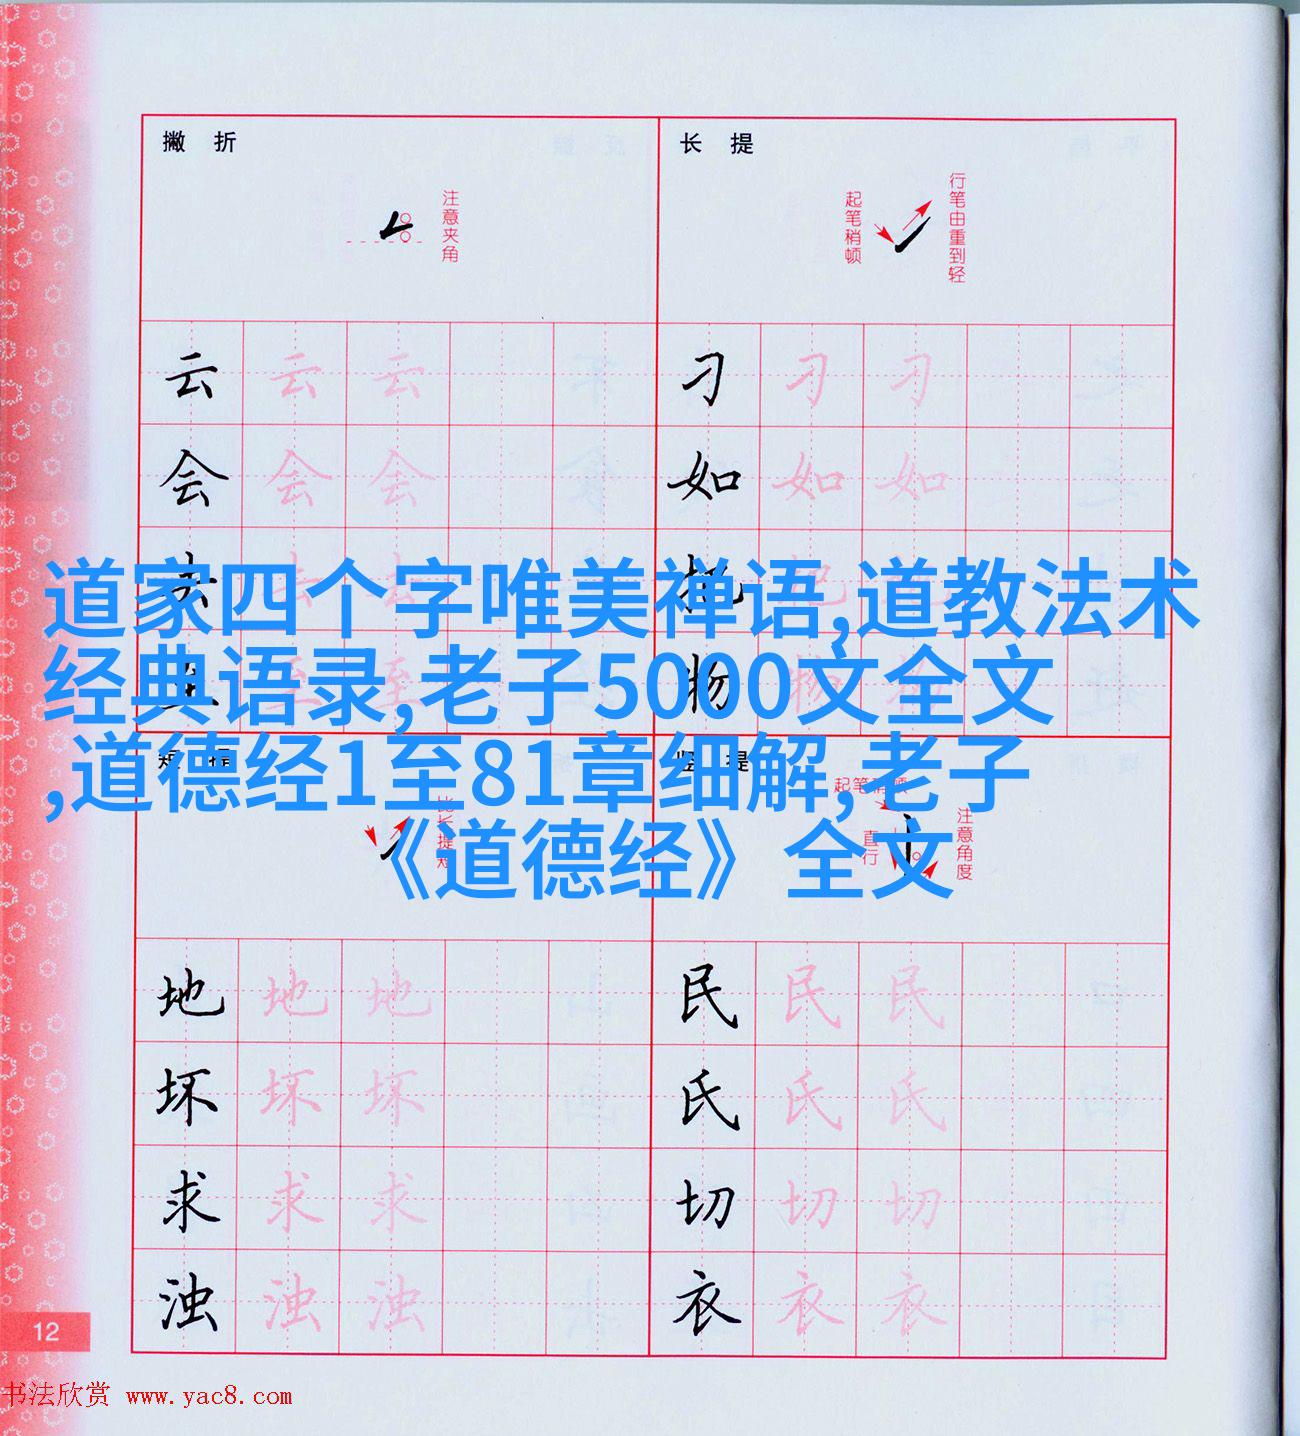 撇 折
注意夹角
长 提
起笔稍顿
行笔由重到轻
云 云 云
刁 刁 刁
会 会 会
如 如 如
去 去 去
物 物
至 至
道家四个字唯美禅语,道教法术
经典语录,老子5000文全文
,道德经1至81章细解,老子
《道德经》全文
短 提
竖 提
起笔稍顿
直行
注意角度
地 地 地
民 民 民
坏 坏 坏
氏 氏 氏
求 求 求
切 切 切
浊 浊 浊
衣 衣 衣
12
书法欣赏 www.yac8.com